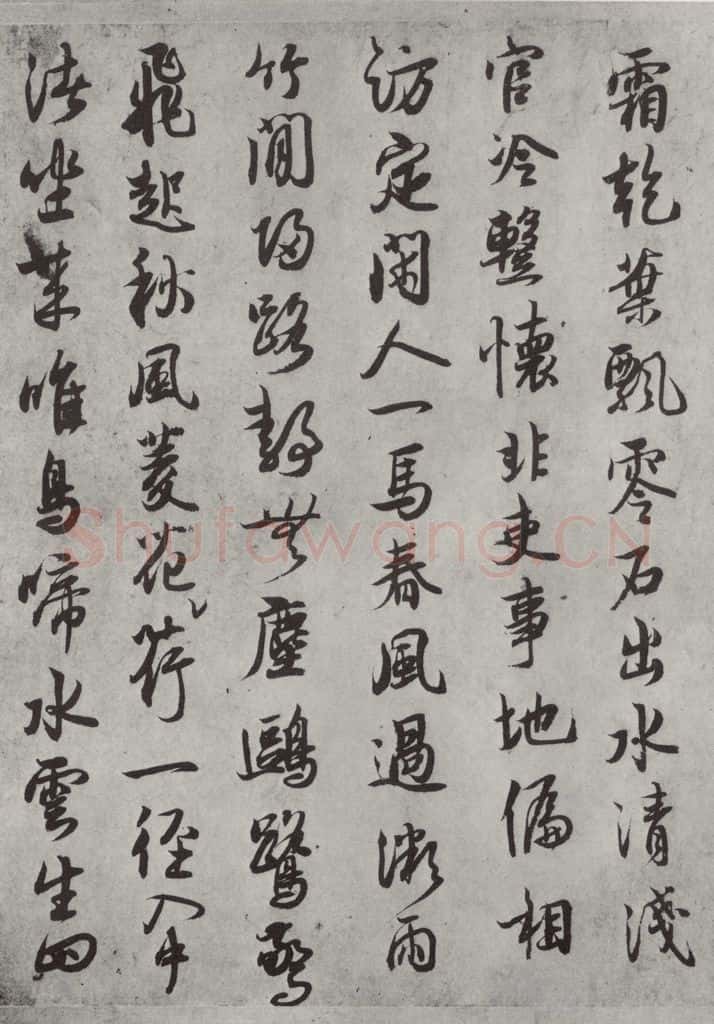 霜乾葉飄零石出水清淺
官冷整懷非吏事地偏相
訪定閑人一馬春風過雨
竹間歸路靜無塵鷗鷺驚
飛起秋風菱花荷一徑入中
渚坐來唯鳥啼水雲生四
Shufawang.CN